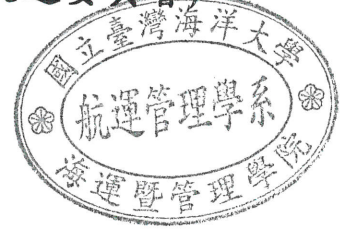 國立臺灣海洋大學
航運管理學系
海運暨管理學院